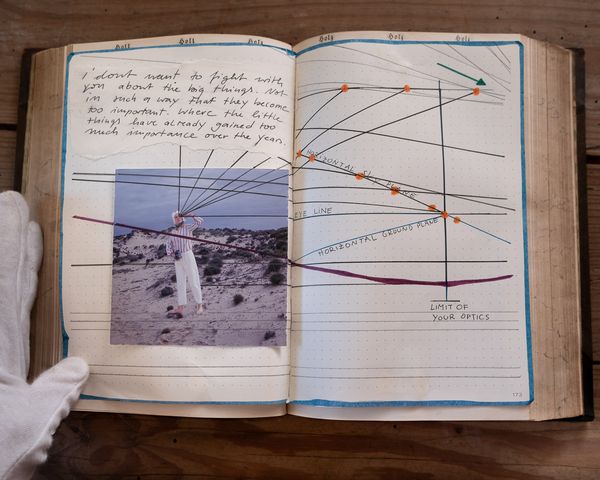 Holf Holf Holf
i dont want to fight with
you about the big things. Not
in such a way that they become
too important. Where the little
things have already gained too
much importance over the years.
Holf Holf Holf
HORIZONTAL PLANE
EYE LINE
HORIZONTAL GROUND PLANE
LIMIT OF
YOUR OPTICS
173